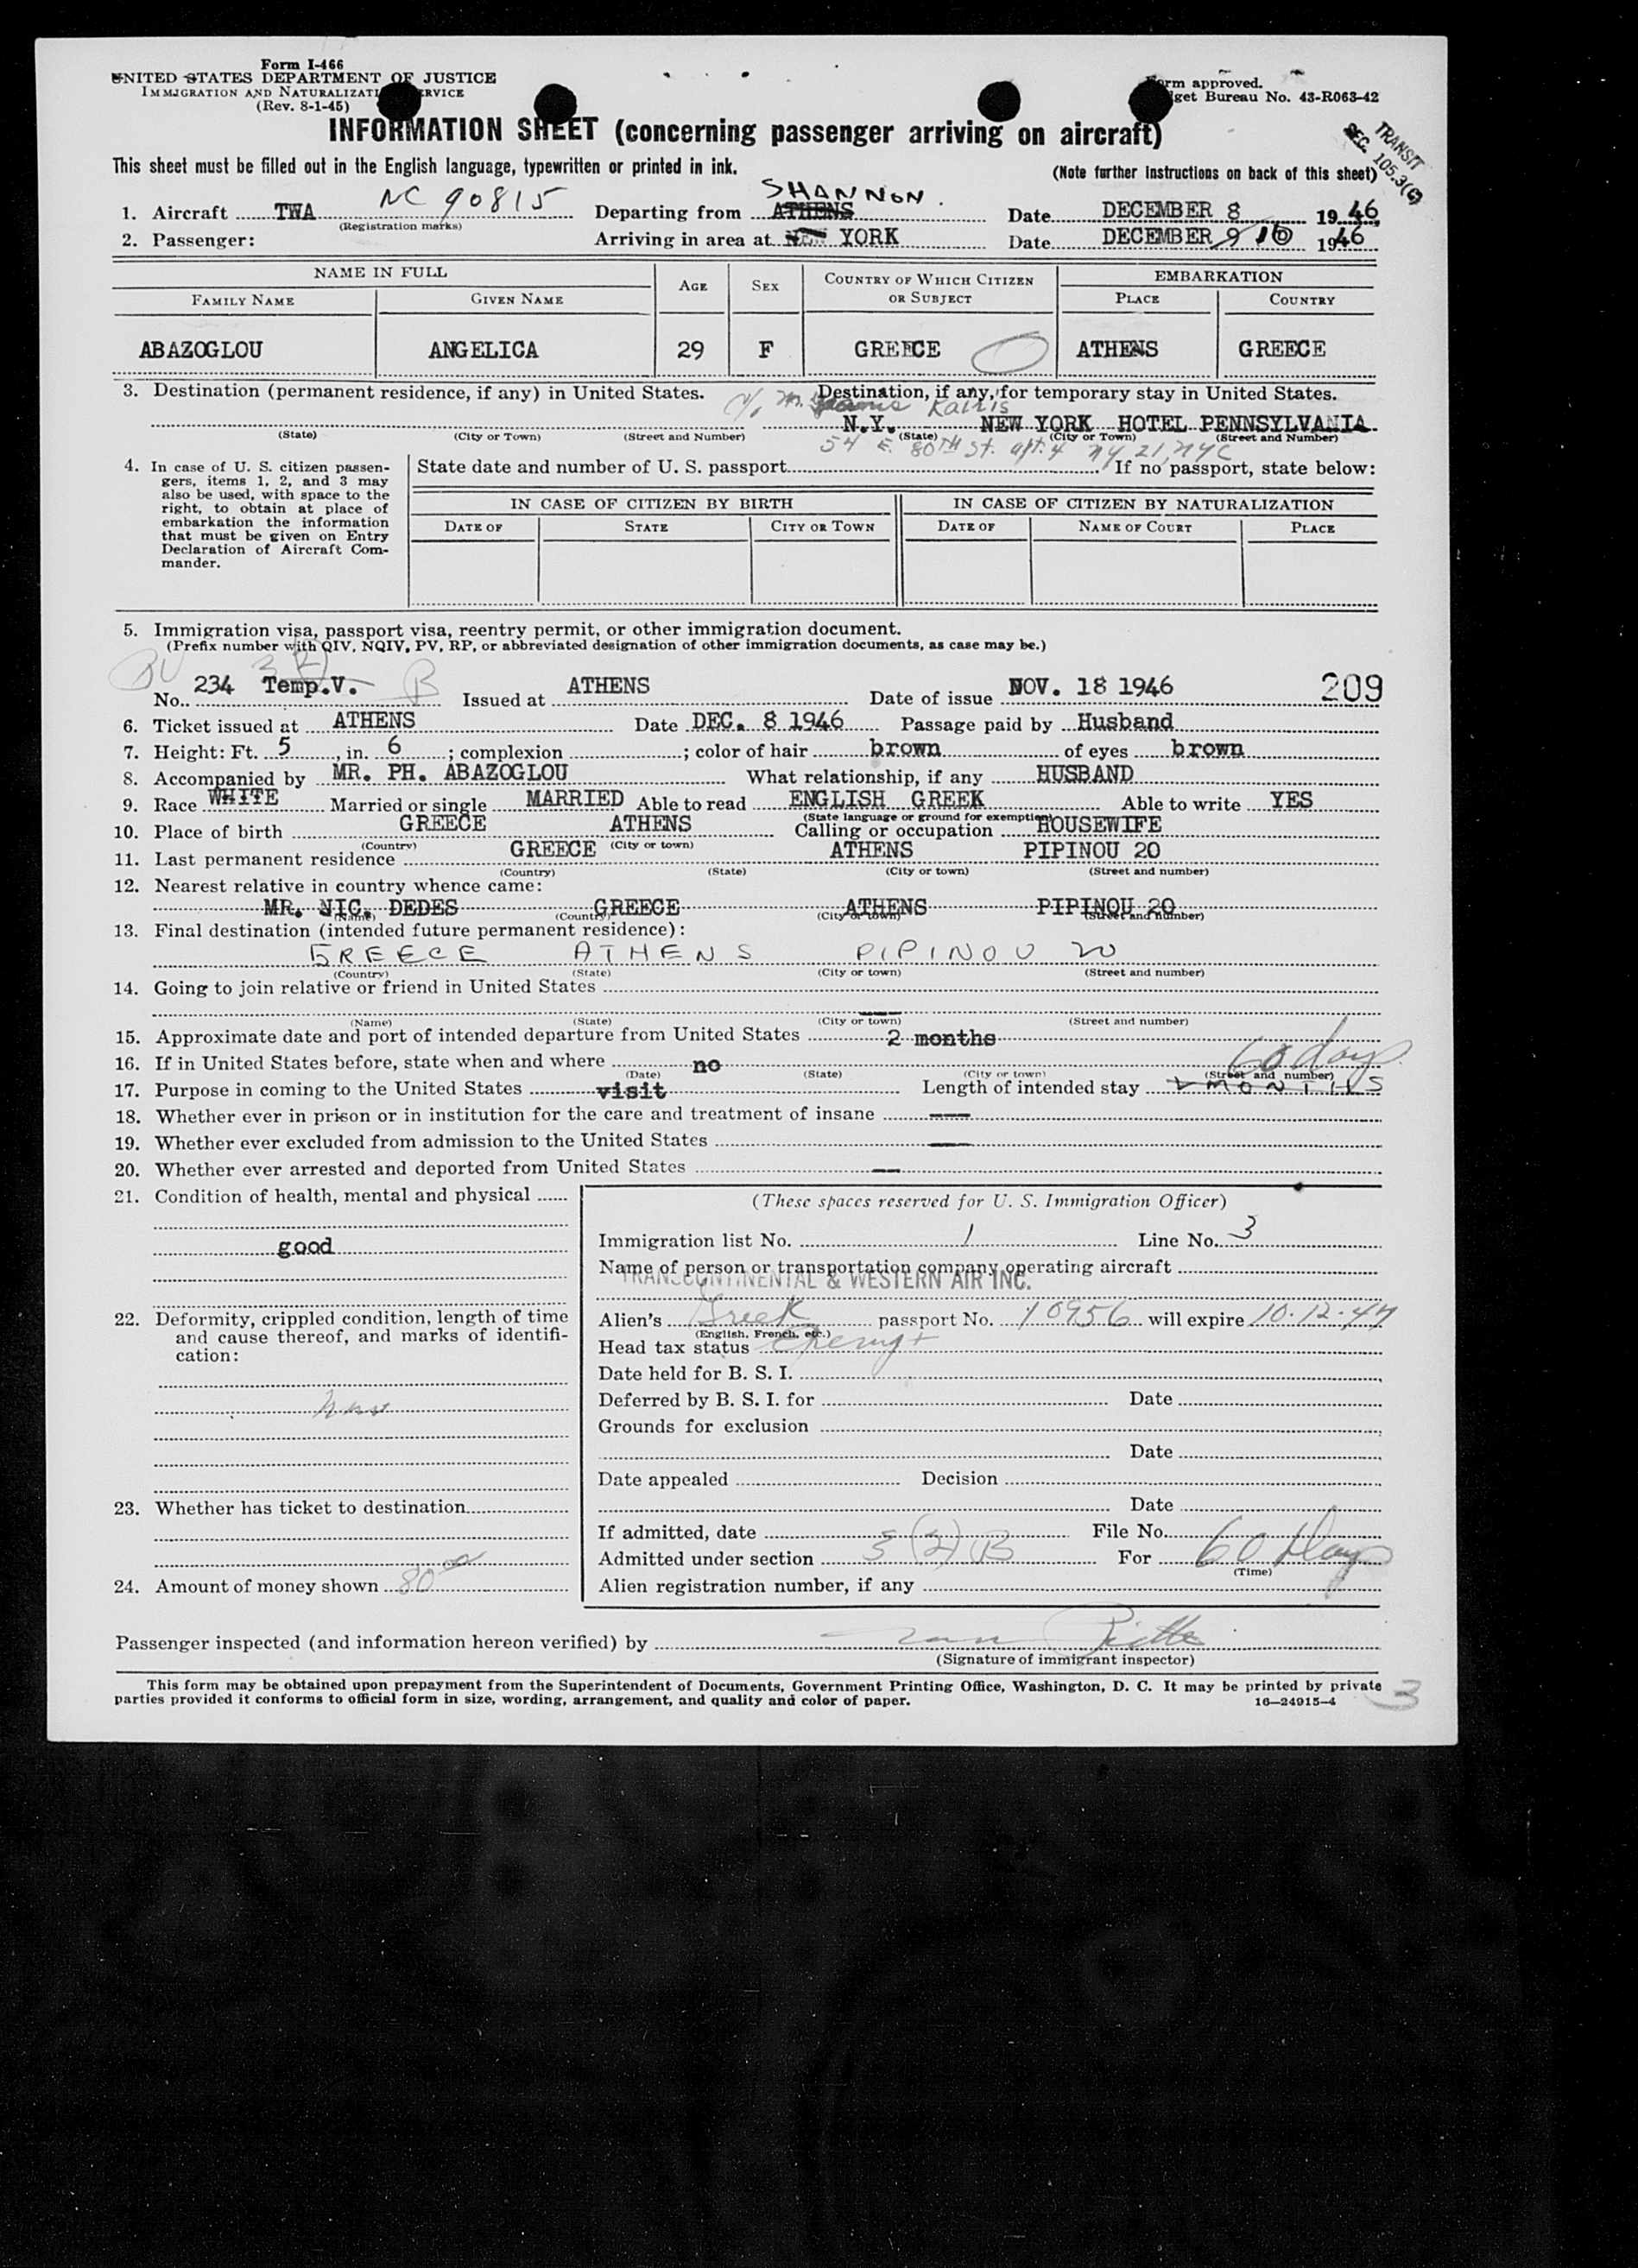 Form I-466
UNITED STATES DEPARTMENT OF JUSTICE
IMMIGRATION AND NATURALIZATI RVICE
(Rev. 8-1-45)
rm approved.
get Bureau No. 43-R063-42
TRANSIT
SEC. 105.3(C)
INFORMATION SHEET (concerning passenger arriving on aircraft)
This sheet must be filled out in the English language, typewritten or printed in ink. (Note further instructions on back of this sheet)
SHANNON
1. Aircraft TWA NC 90815 Departing from ATHENS Date DECEMBER 8 1946
(Registration marks)
2. Passenger: Arriving in area at NEW YORK Date DECEMBER 9 10 1946
NAME IN FULL AGE SEX COUNTRY OF WHICH CITIZEN OR SUBJECT EMBARKATION
FAMILY NAME GIVEN NAME PLACE COUNTRY
ABAZOGLOU ANGELICA 29 F GREECE ATHENS GREECE
3. Destination (permanent residence, if any) in United States. Destination, if any, for temporary stay in United States.
N.Y. NEW YORK HOTEL PENNSYLVANIA
(State) (City or Town) (Street and Number) (State) (City or Town) (Street and Number)
54 E. 80TH St. apt. 4 NY 21, NYC
4. In case of U. S. citizen passen-
gers, items 1, 2, and 3 may
also be used, with space to the
right, to obtain at place of
embarkation the information
that must be given on Entry
Declaration of Aircraft Com-
mander.
State date and number of U. S. passport If no passport, state below:
IN CASE OF CITIZEN BY BIRTH IN CASE OF CITIZEN BY NATURALIZATION
DATE OF STATE CITY OR TOWN DATE OF NAME OF COURT PLACE
5. Immigration visa, passport visa, reentry permit, or other immigration document.
(Prefix number with QIV, NQIV, PV, RP, or abbreviated designation of other immigration documents, as case may be.)
3(2) B
No. 234 Temp.V. Issued at ATHENS Date of issue NOV. 18 1946 209
6. Ticket issued at ATHENS Date DEC. 8 1946 Passage paid by Husband
7. Height: Ft. 5, in. 6; complexion ; color of hair brown of eyes brown
8. Accompanied by MR. PH. ABAZOGLOU What relationship, if any HUSBAND
9. Race WHITE Married or single MARRIED Able to read ENGLISH GREEK Able to write YES
(State language or ground for exemption)
10. Place of birth GREECE ATHENS Calling or occupation HOUSEWIFE
(Country) (City or town)
11. Last permanent residence GREECE ATHENS PIPINOU 20
(Country) (State) (City or town) (Street and number)
12. Nearest relative in country whence came:
MR. NIC. DEDES GREECE ATHENS PIPINOU 20
(Name) (Country) (City or town) (Street and number)
13. Final destination (intended future permanent residence):
GREECE ATHENS PIPINOU 20
(Country) (State) (City or town) (Street and number)
14. Going to join relative or friend in United States
(Name) (State) (City or town) (Street and number)
15. Approximate date and port of intended departure from United States 2 months
16. If in United States before, state when and where no
60 days
(Date) (State) (City or town) (Street and number)
17. Purpose in coming to the United States visit Length of intended stay 2 MONTHS
18. Whether ever in prison or in institution for the care and treatment of insane —
19. Whether ever excluded from admission to the United States —
20. Whether ever arrested and deported from United States —
21. Condition of health, mental and physical
good
22. Deformity, crippled condition, length of time
and cause thereof, and marks of identifi-
cation:
23. Whether has ticket to destination
24. Amount of money shown 80 00
(These spaces reserved for U. S. Immigration Officer)
Immigration list No. 1 Line No. 3
Name of person or transportation company operating aircraft
TRANSCONTINENTAL & WESTERN AIR INC.
Alien's Greek passport No. 10956 will expire 10-12-47
(English, French, etc.)
Head tax status Exempt
Date held for B. S. I.
Deferred by B. S. I. for Date
Grounds for exclusion
Date
Date appealed Decision
Date
If admitted, date File No.
Admitted under section 3(2)B For 60 Days
(Time)
Alien registration number, if any
Passenger inspected (and information hereon verified) by
(Signature of immigrant inspector)
This form may be obtained upon prepayment from the Superintendent of Documents, Government Printing Office, Washington, D. C. It may be printed by private
parties provided it conforms to official form in size, wording, arrangement, and quality and color of paper. 16—24915-4
3